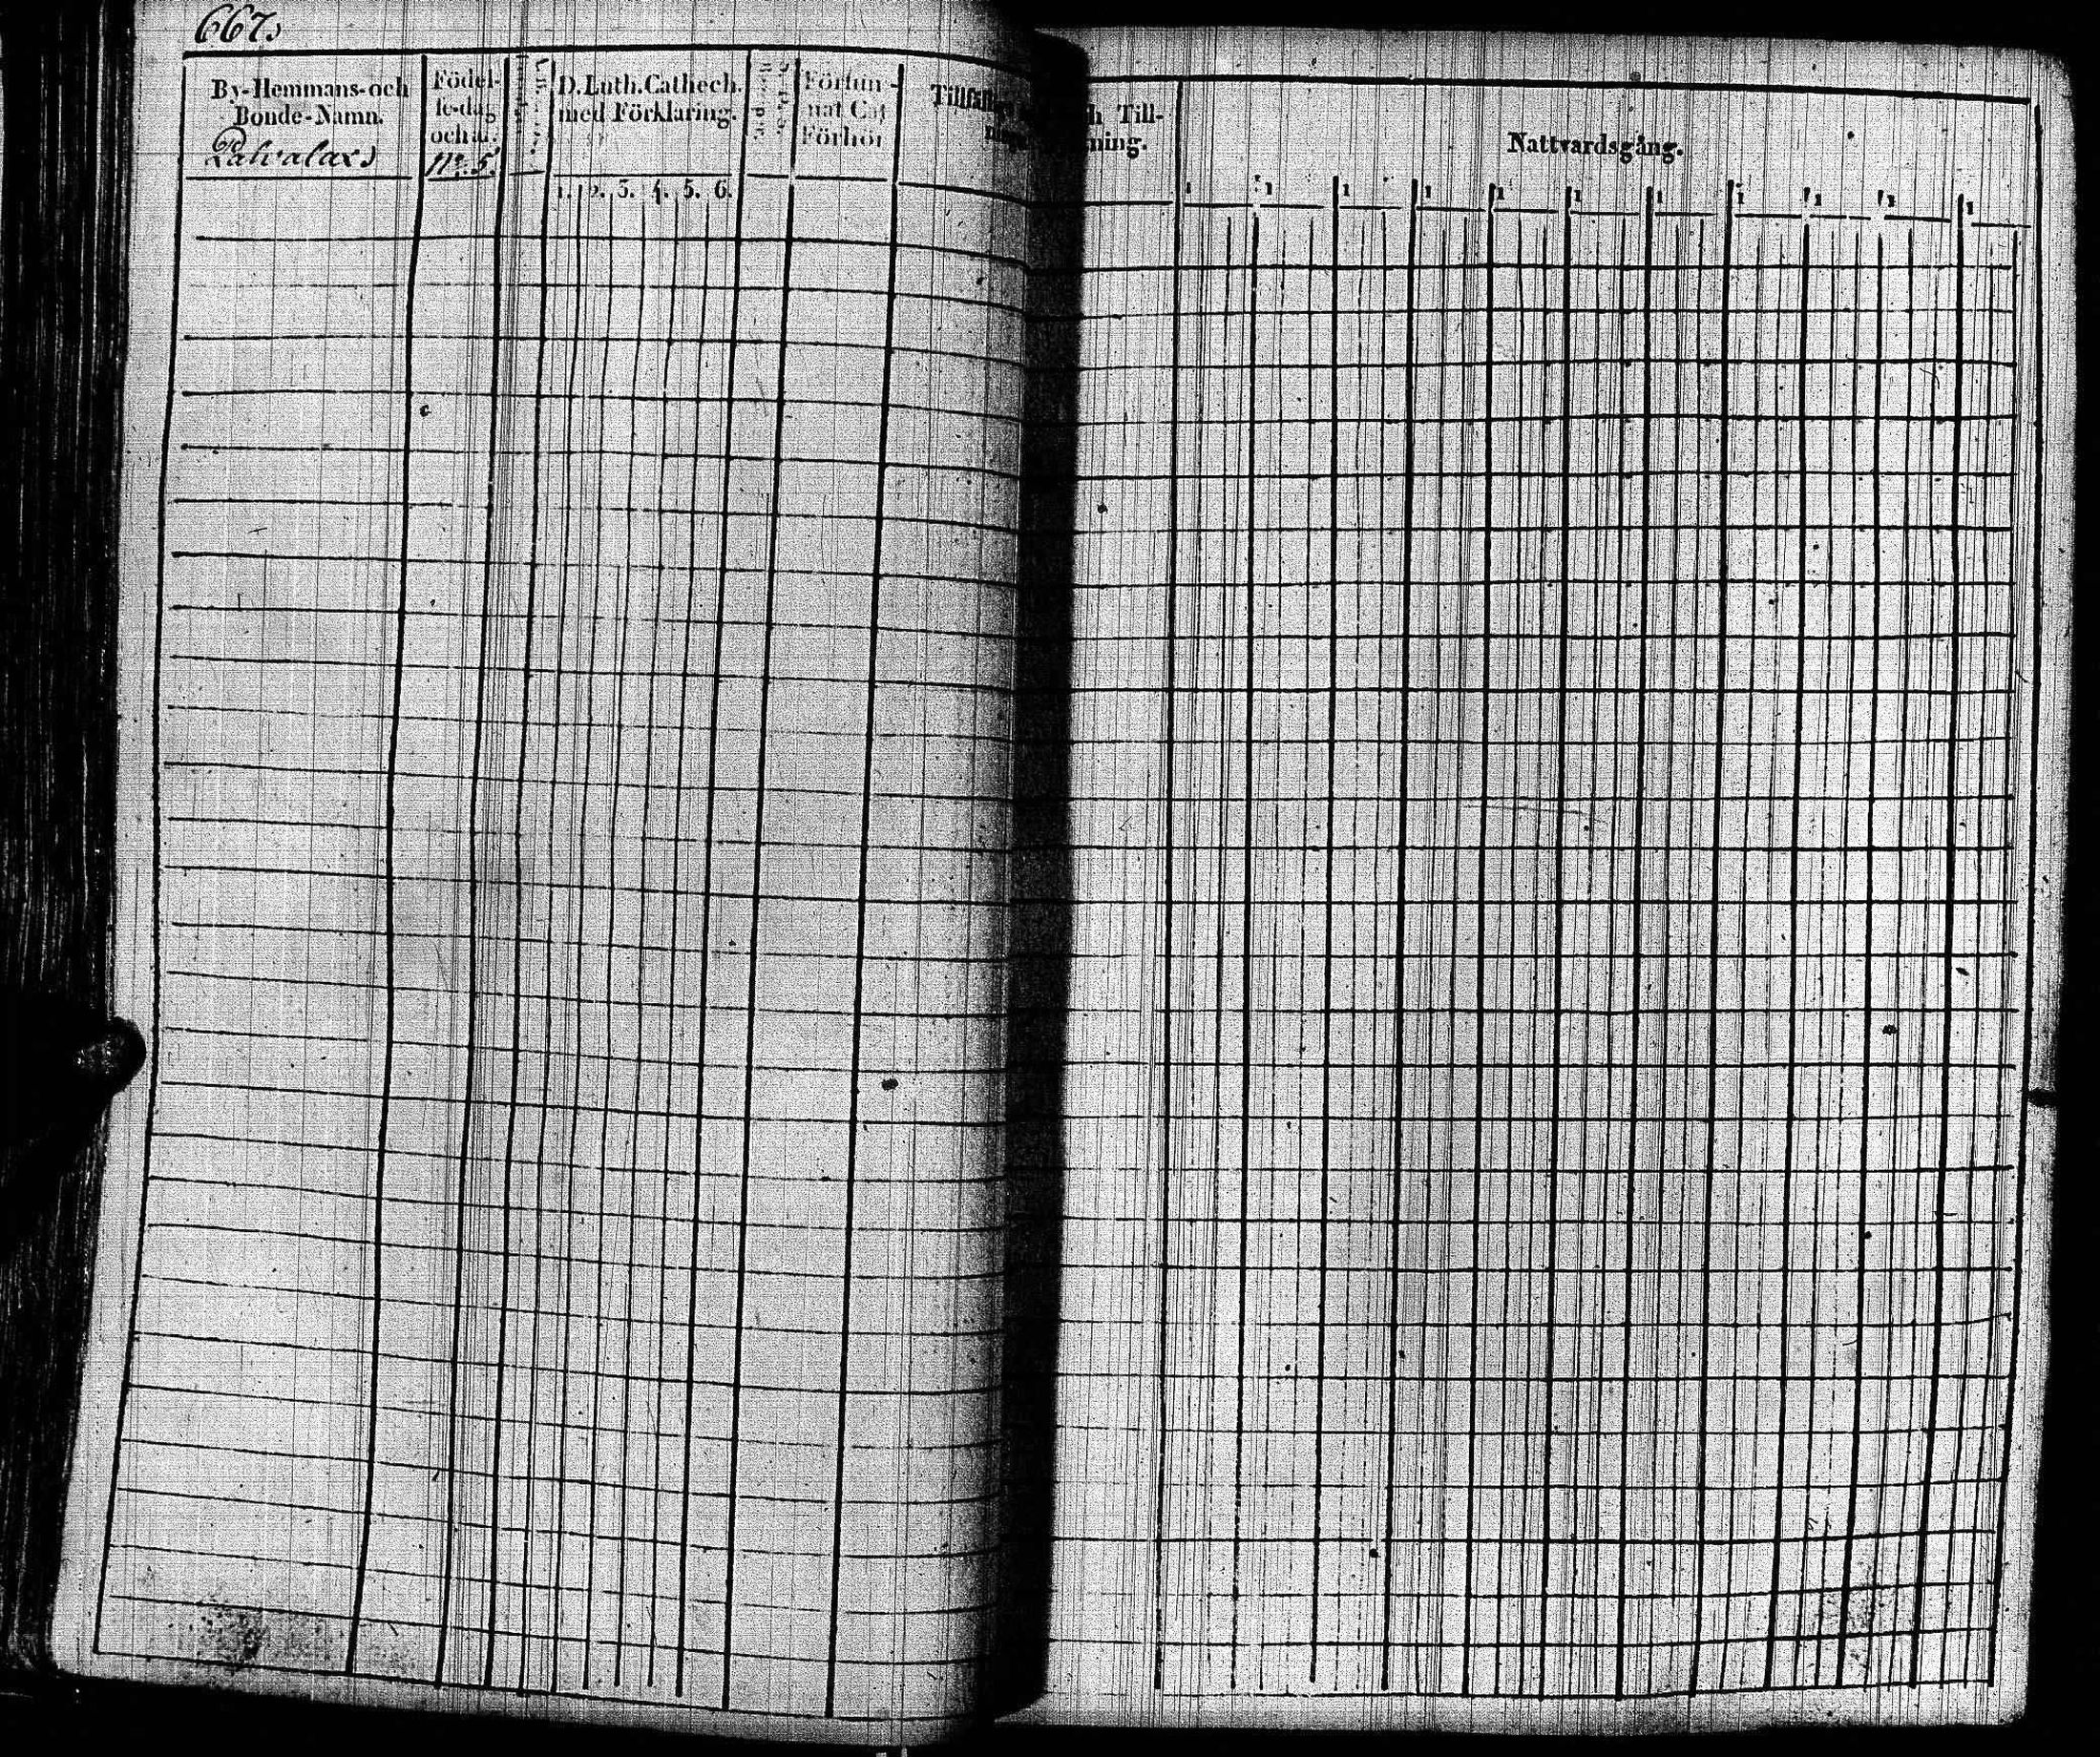 667.
By-Hemmans-och
Bonde-Namn.
Palvalax
Födel-
se-dag
och år.
No. 5.
D. Luth. Cathech.
med Förklaring.
1. 2. 3. 4. 5. 6.
Försum-
nat Cat
Förhör
Tillfälli
h Till-
ning.
Nattvardsgång.
1 1 1 1 1 1 1 1 1 1 1